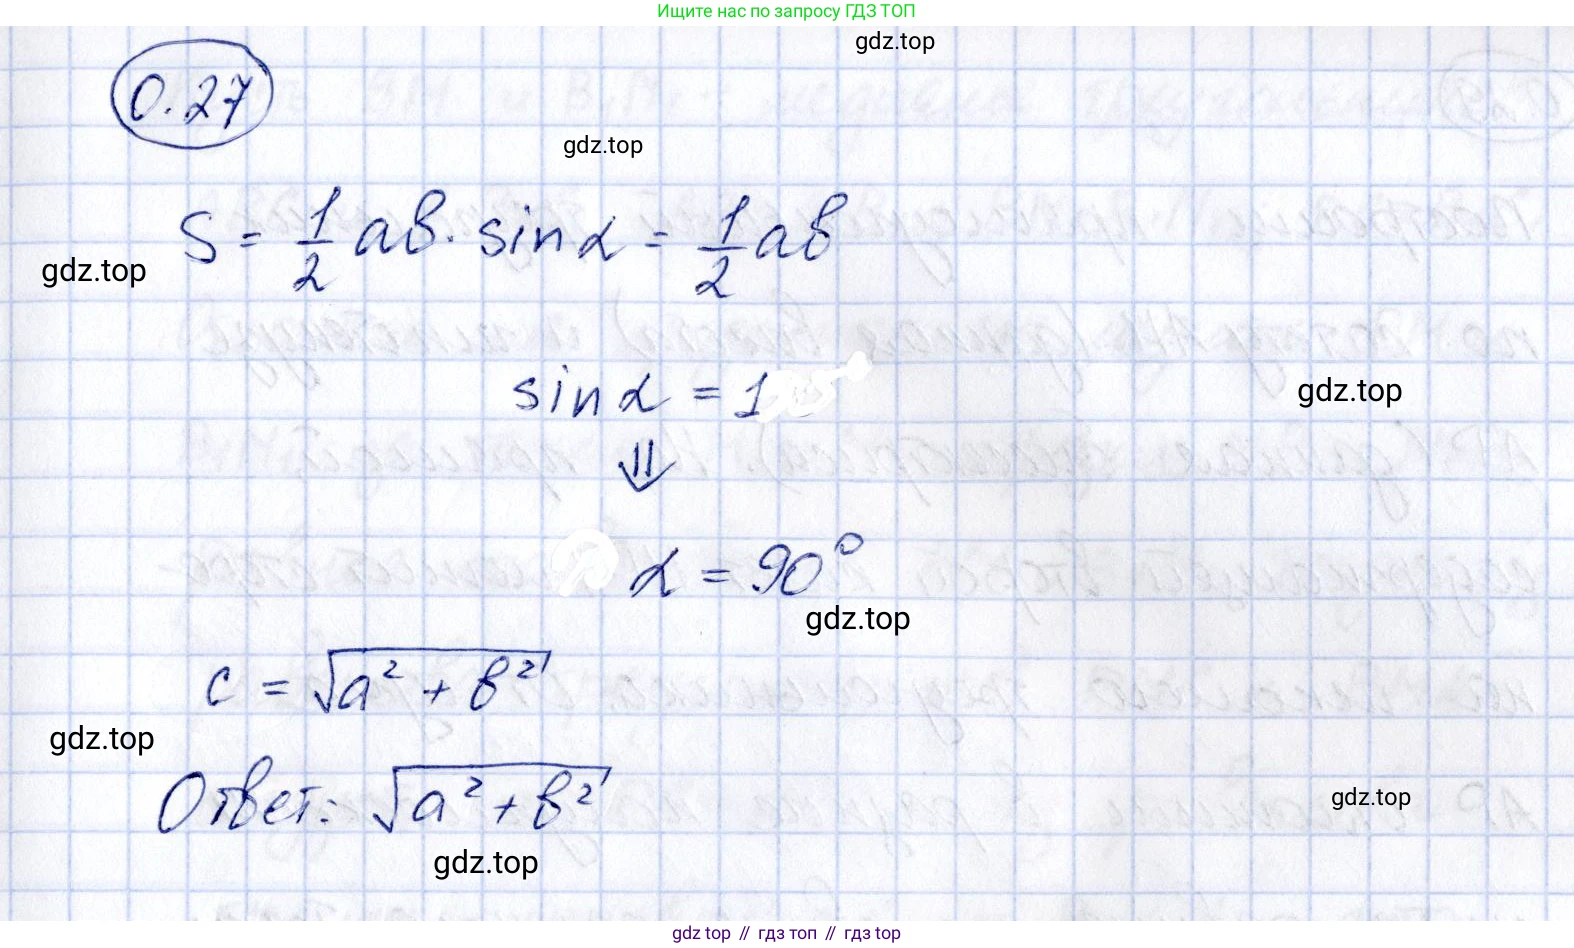 Ищите нас по запросу ГДЗ ТОП
gdz.top
0.27
gdz.top
S = 1/2 ab · sin α = 1/2 ab
gdz.top
sin α = 1
gdz.top
⇓
α = 90°
gdz.top
c = √(a² + b²)
gdz.top
Ответ: √(a² + b²)
gdz.top
gdz.top
gdz top // гдз топ // гдз top